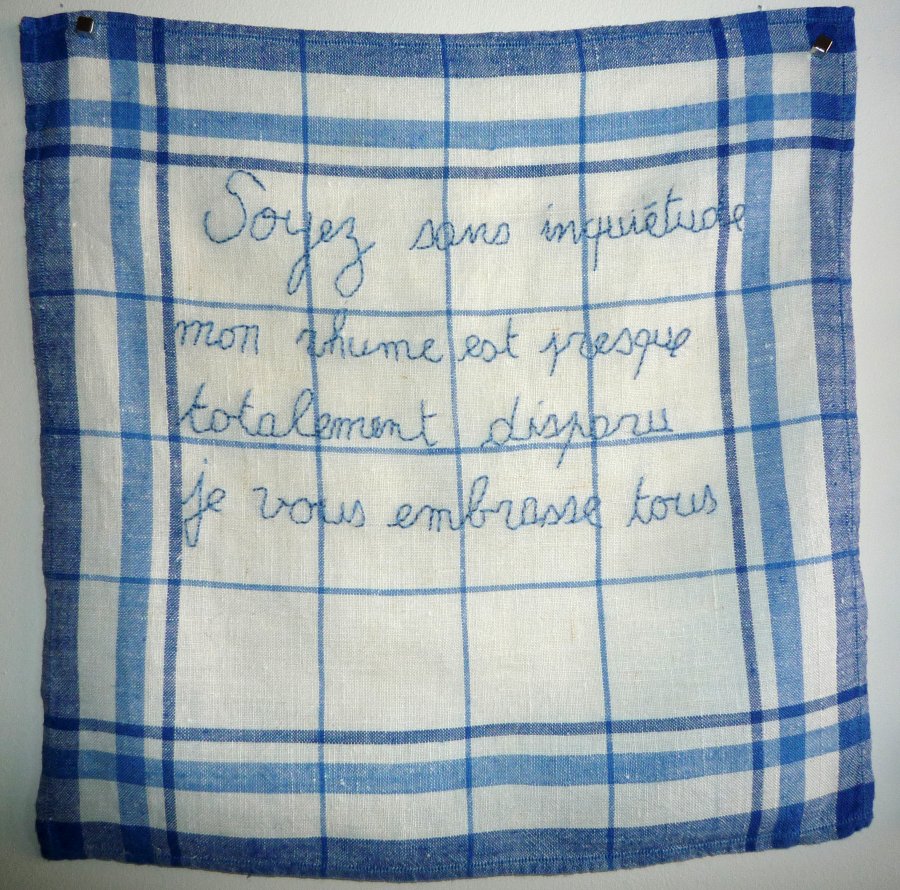 Soyez sans inquiétude
mon rhume est presque
totalement disparu
je vous embrasse tous